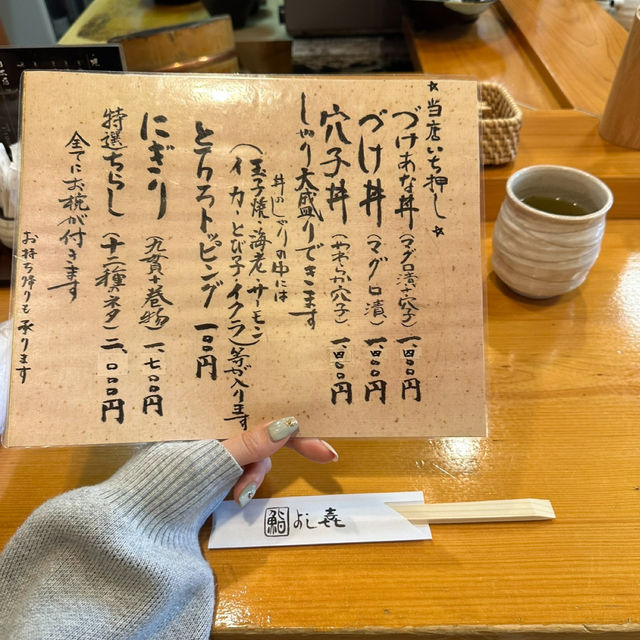 ★当店いち押し★
づけあな丼(マグロ漬・穴子)一、四〇〇円
づけ丼(マグロ漬)一、四〇〇円
穴子丼(やわらか穴子)一、四〇〇円
しゃり大盛りできます
丼のしゃりの中には
(玉子焼・海老・サーモン
イカ・とび子・イクラ)等が入ります
とろろトッピング 一〇〇円
にぎり(九貫+巻物)一、七〇〇円
特選ちらし(十二種のネタ)二、〇〇〇円
全てにお椀が付きます
お持ち帰りも承ります
鮨 よし㐂